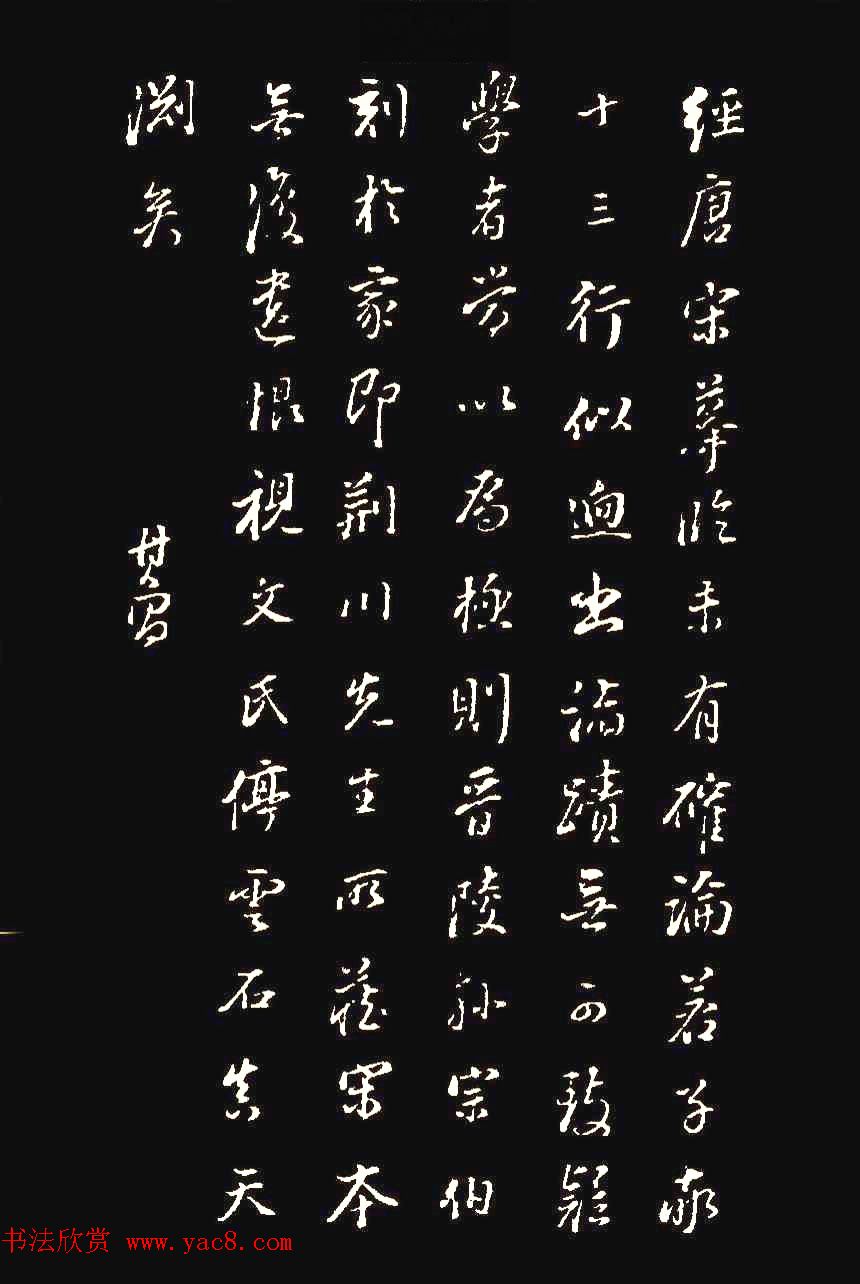 經唐宋摹臨未有確論若子敬
十三行似迥出諸蹟無可致疑
學者當以爲極則晉陵孫宗伯
刻於家即荊川先生所藏宋本
無復遺恨視文氏停雲石真天
淵矣
其昌
书法欣赏 www.yac8.com